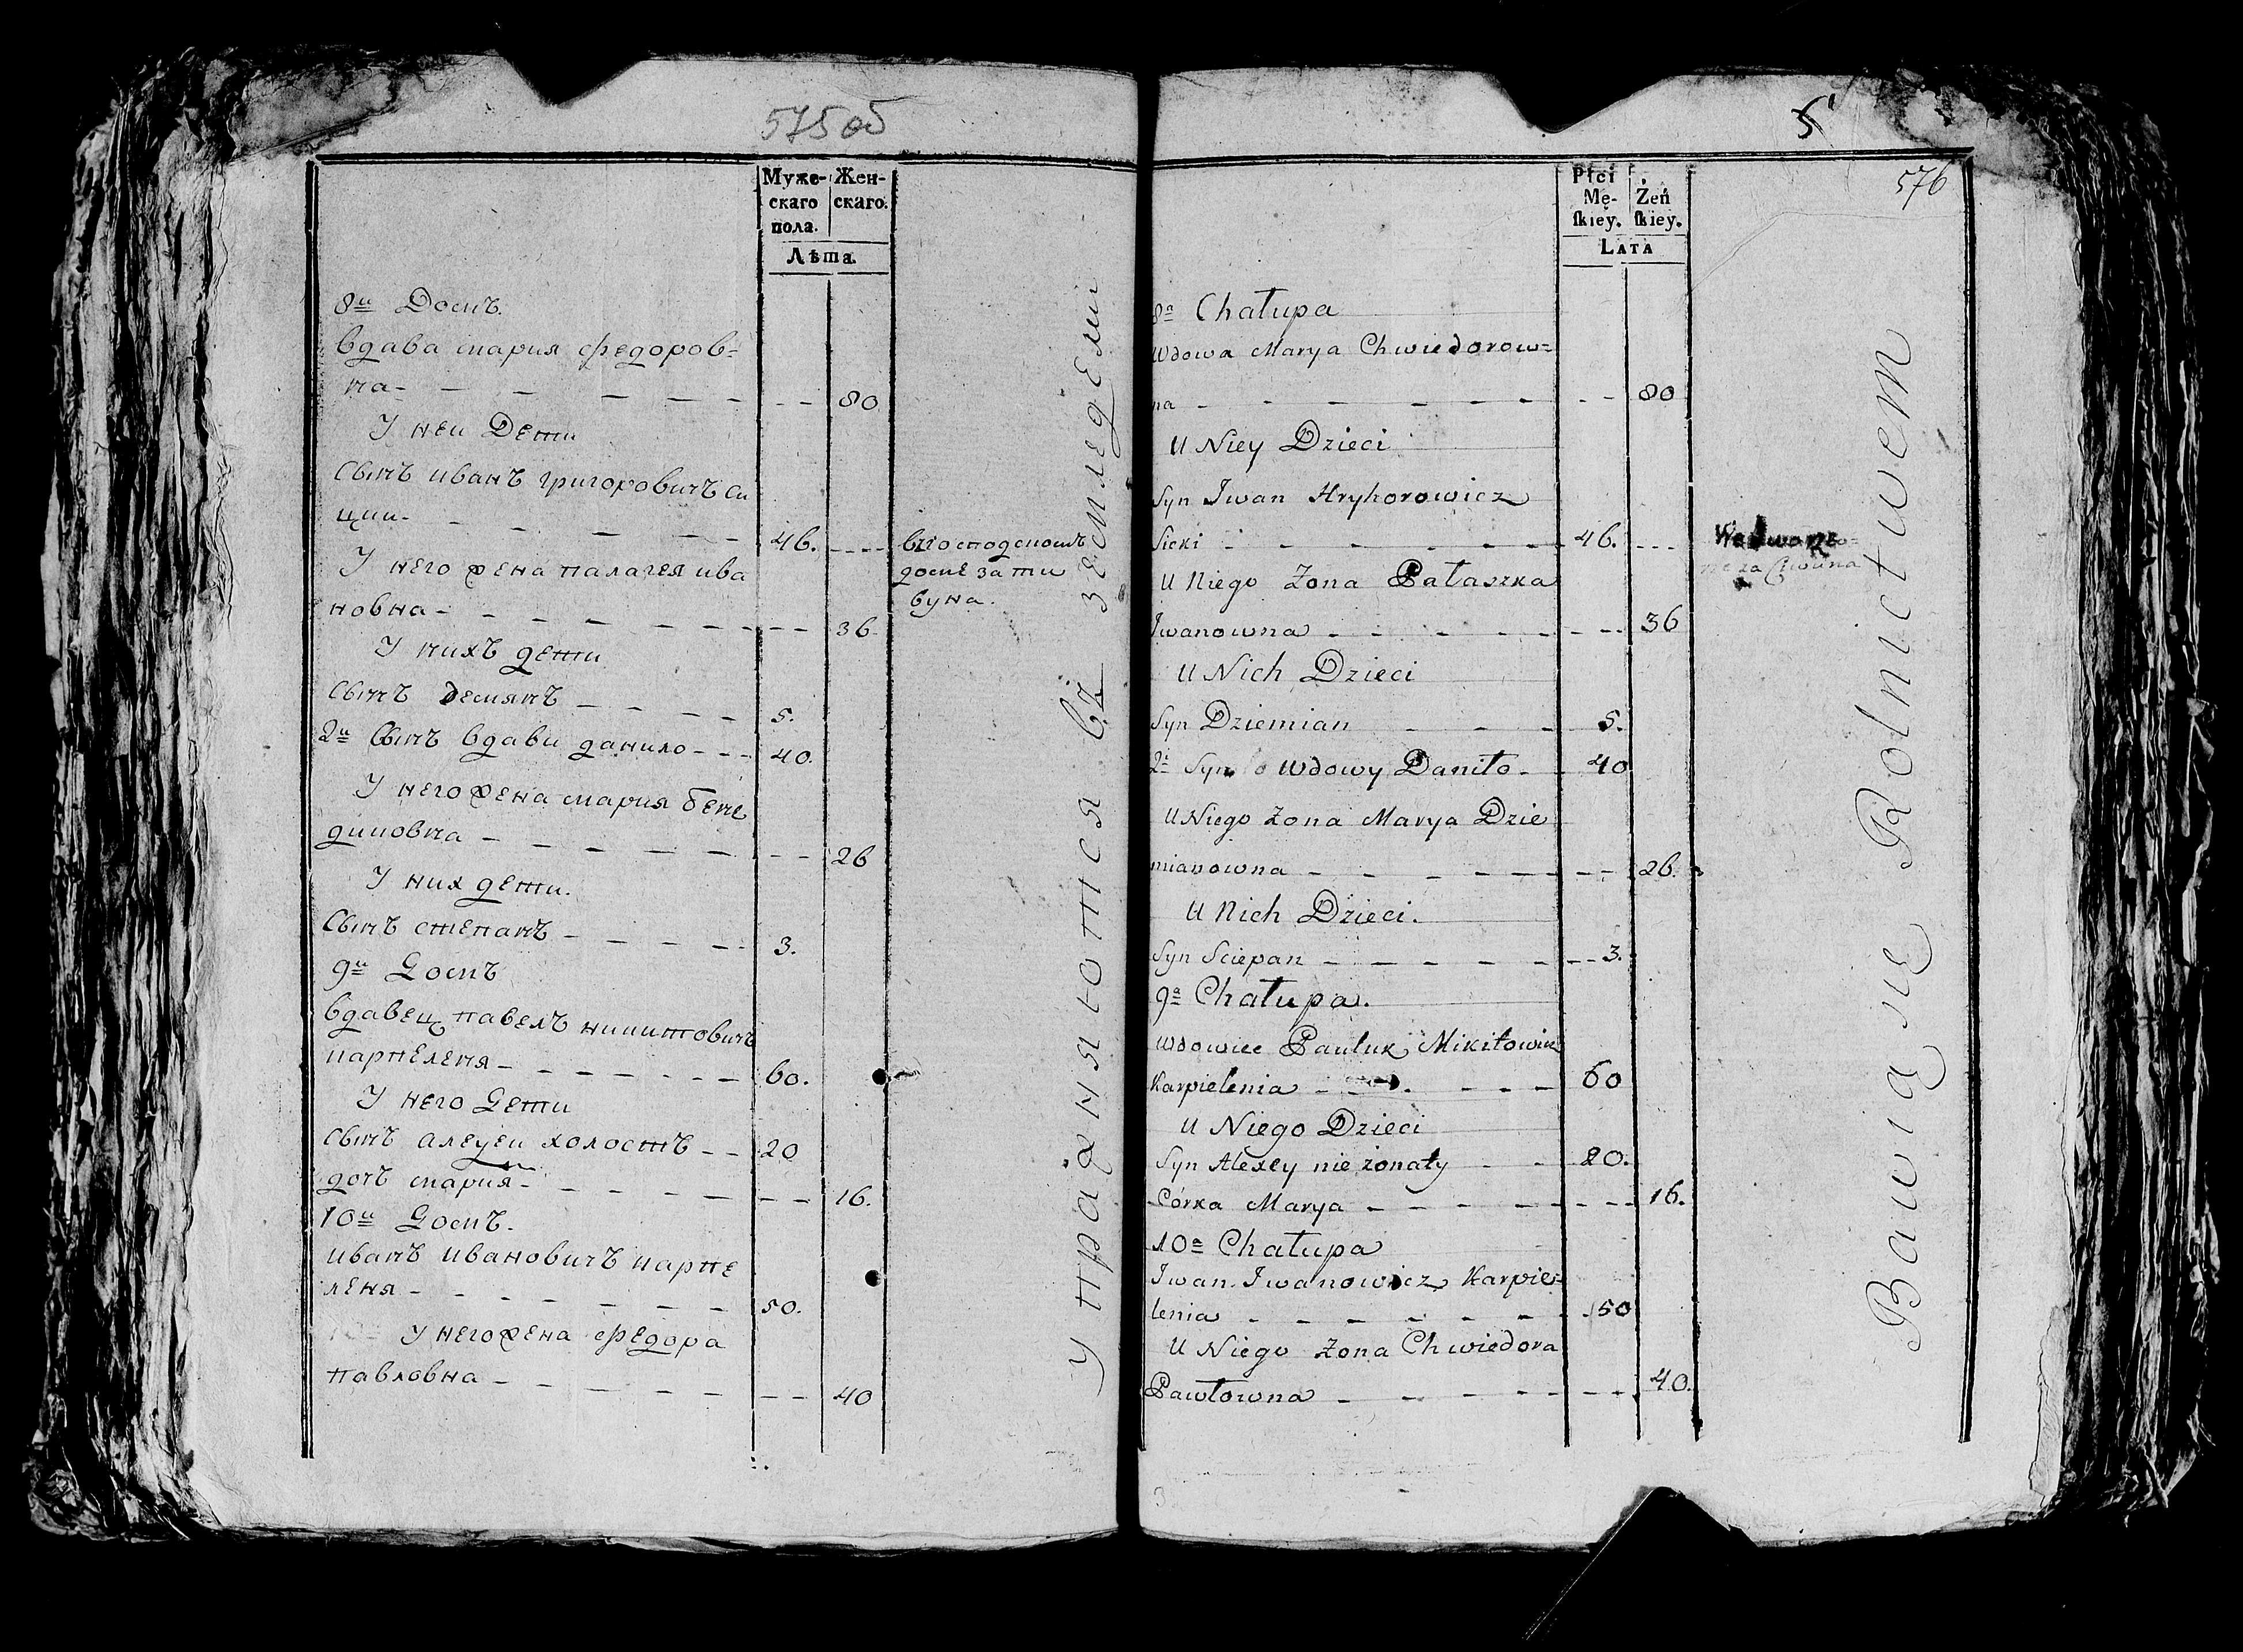 575 об
Муже-
скаго
пола.
Жен-
скаго.
Лѣта.
8и Домъ.
вдава мария федоров=
на - - - - - - - - 80
У неи Дети
Сынъ иванъ григоровичъ си
цки - - - - - - 46. - - -
У него жена палагея ива
новна - - - - - - - - 36.
У нихъ дети
Сынъ демянъ - - - - 5.
2и Сынъ вдави данило - - - 40.
У него жена мария
- - - - - - - - 26
У них дети.
Сынъ степанъ - - - - - 3.
9и Домъ
вдавец павелъ никитовичъ
карпеленя - - - - - - - 60.
У него Дети
Сынъ алецеи холостъ - - 20
дочъ мария - - - - - - - - 16.
10и Домъ.
иванъ ивановичъ карпе
леня - - - - - - - 50.
У него жена федора
павловна - - - - - - - - 40
въ господскомъ
доме за ти
вуна.
упражняются въ земледелии
5
576
Płci
Mę-
ſkiey.
Żeń
ſkiey.
LATA
8a Chałupa
Wdowa Marya Chwiedorow=
na - - - - - - - - - 80
U Niey Dzieci
Syn Iwan Hryhorowicz
Sicki - - - - - - 46. - - -
U Niego Żona Pałaszka
Iwanowna - - - - - - - 36
U Nich Dzieci
Syn Dziemian - - - 5.
2i Syn Wdowy Daniło - - 40
U Niego Żona Marya Dzie
mianowna - - - - - - - - 26.
U Nich Dzieci.
Syn Sciepan - - - - - - - 3.
9a Chałupa.
Wdowiec Pauluk Mikitowicz
Karpielenia - - - - - 60
U Niego Dzieci
Syn Alexey nie żonaty - - 20.
Córka Marya - - - - - - - 16.
10a Chałupa
Iwan Iwanowicz Karpie=
lenia - - - - - - - 50
U Niego Żona Chwiedora
Pawłowna - - - - - - 40.
za Ciwuna
Bawią się Rolnictwem